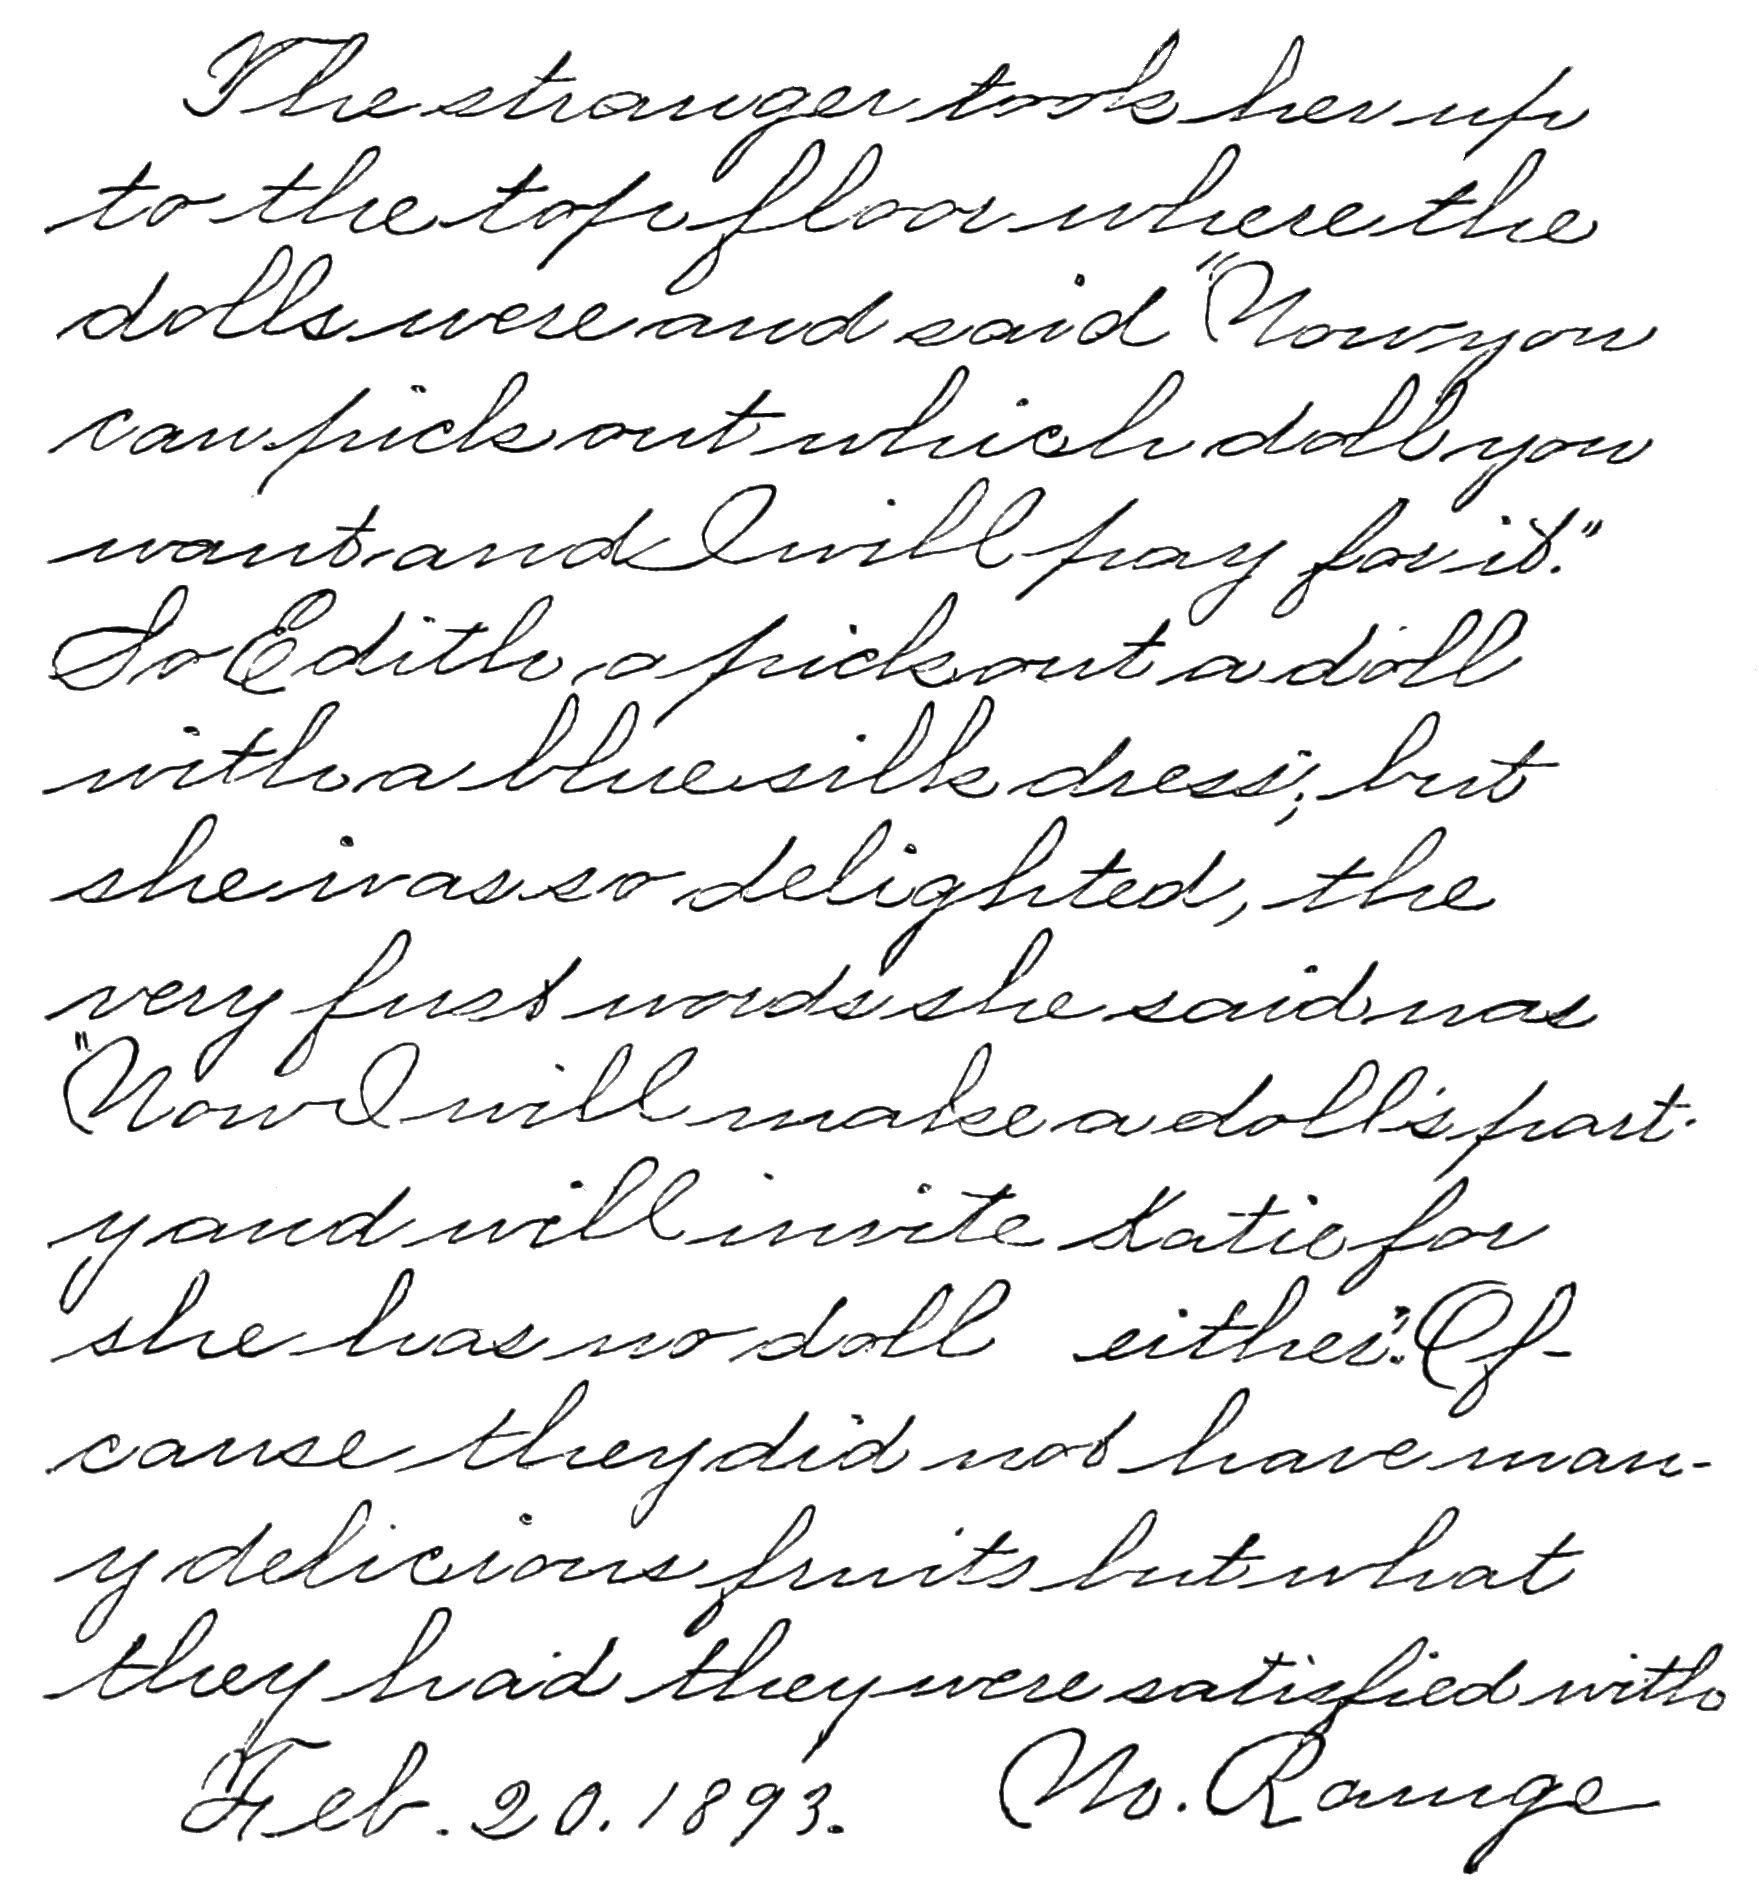 The stranger took her up
to the top floor where the
dolls were and said "Now you
can pick out which doll you
want and I will pay for it."
So Edith a pick out a doll
with a blue silk dress; but
she was so delighted, the
very first words she said was
"Now I will make a doll's part-
y and will invite Katie for
she has no doll either." Of-
cause they did not have man-
y delicious fruits but what
they had they were satisfied with
Feb. 20. 1893. M. Raunge